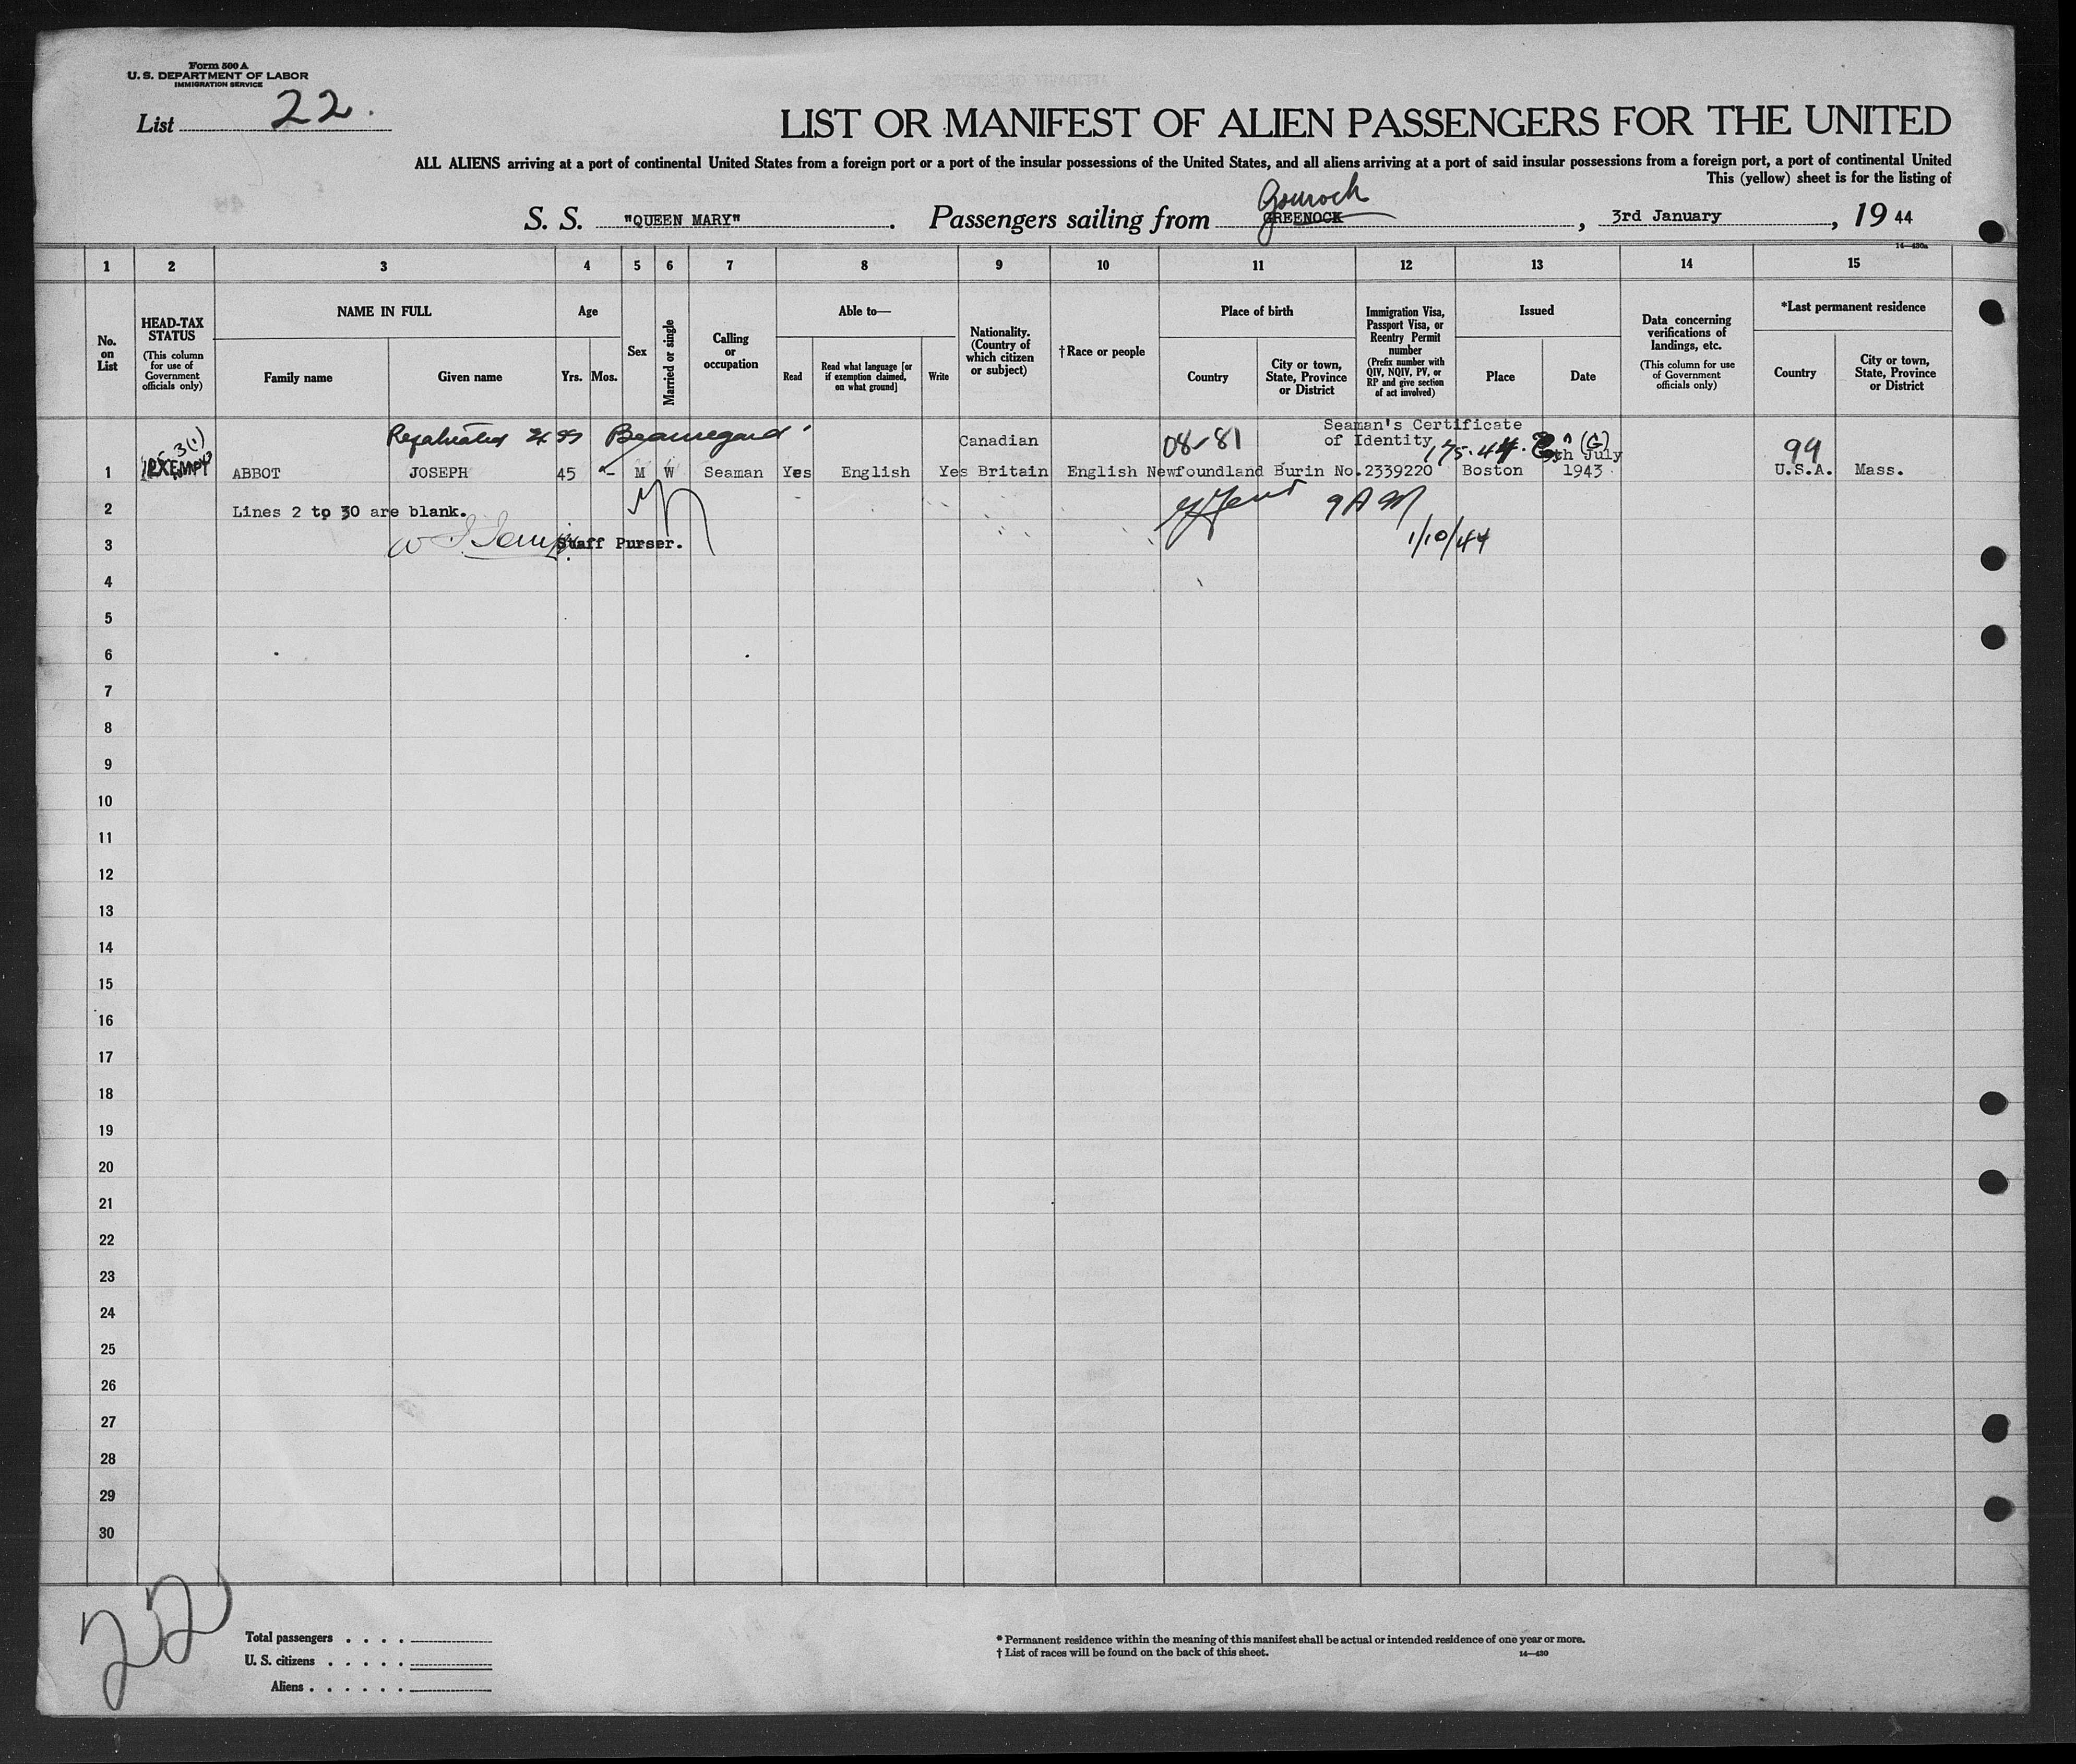 Form 500 A
U. S. DEPARTMENT OF LABOR
IMMIGRATION SERVICE
List 22.
LIST OR MANIFEST OF ALIEN PASSENGERS FOR THE UNITED
ALL ALIENS arriving at a port of continental United States from a foreign port or a port of the insular possessions of the United States, and all aliens arriving at a port of said insular possessions from a foreign port, a port of continental United
This (yellow) sheet is for the listing of
Gourock
S. S. "QUEEN MARY". Passengers sailing from GREENOCK, 3rd January, 19 44
14—430a
1 2 3 4 5 6 7 8 9 10 11 12 13 14 15
No. on List
HEAD-TAX STATUS
(This column for use of Government officials only)
NAME IN FULL
Family name
Given name
Age
Yrs.
Mos.
Sex
Married or single
Calling or occupation
Able to—
Read
Read what language [or if exemption claimed, on what ground]
Write
Nationality. (Country of which citizen or subject)
†Race or people
Place of birth
Country
City or town, State, Province or District
Immigration Visa, Passport Visa, or Reentry Permit number
(Prefix number with QIV, NQIV, PV, or RP and give section of act involved)
Issued
Place
Date
Data concerning verifications of landings, etc.
(This column for use of Government officials only)
*Last permanent residence
Country
City or town, State, Province or District
3(1)
Repatriated Ex SS Beauregard
Canadian
Seaman's Certificate
of Identity
99
1 EXEMPT ABBOT JOSEPH 45 - M W Seaman Yes English Yes Britain English Newfoundland Burin No.2339220 Boston July 1943 U.S.A. Mass.
2 Lines 2 to 30 are blank. 9 AM
3 Staff Purser. 1/10/44
4
5
6
7
8
9
10
11
12
13
14
15
16
17
18
19
20
21
22
23
24
25
26
27
28
29
30
22
Total passengers . . . .
U. S. citizens . . . . .
Aliens . . . . . .
* Permanent residence within the meaning of this manifest shall be actual or intended residence of one year or more.
† List of races will be found on the back of this sheet.
14—430